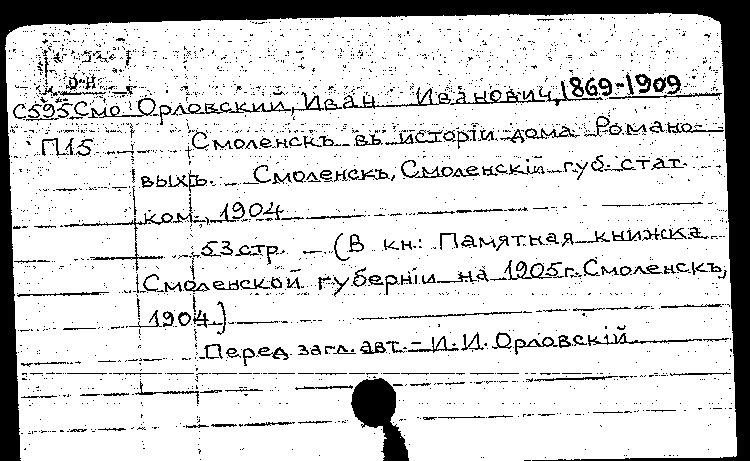 О-Н
С595Смо Орловский, Иван Иванович, 1869-1909
П15 Смоленскъ въ исторіи дома Романо-
выхъ. Смоленскъ, Смоленскій губ. стат.
ком., 1904
53 стр. — (В кн.: Памятная книжка
Смоленской губерніи на 1905г. Смоленскъ,
1904.)
Перед загл. авт. – И. И. Орловскій.